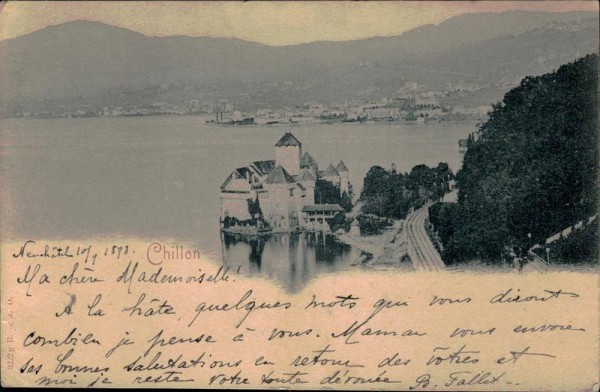 Neuchâtel 10/9 1898.
Chillon
Ma chère Mademoiselle!
A la hâte, quelques mots qui vous diront
combien je pense à vous. Maman vous envoie
ses bonnes salutations en retour des vôtres et
moi je reste votre toute dévouée B. Fallet.